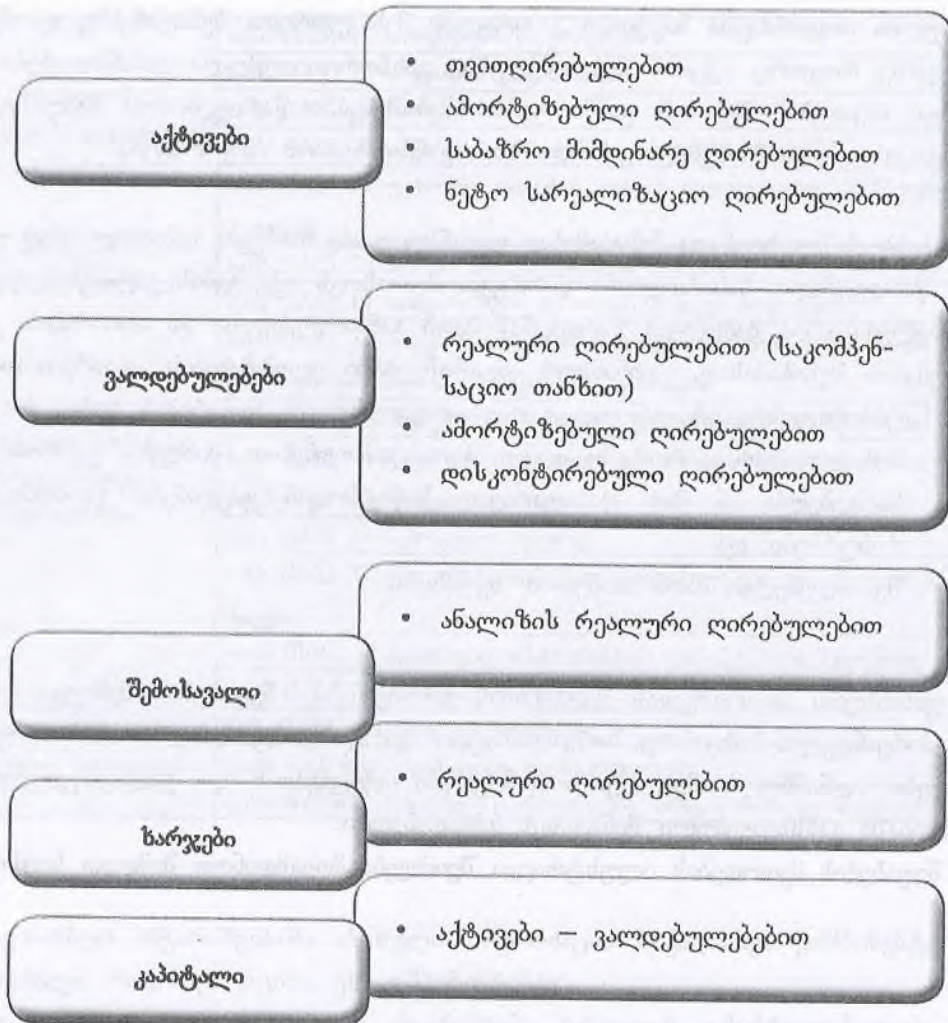 აქტივები
• თვითღირებულებით
• ამორტიზებული ღირებულებით
• საბაზრო მიმდინარე ღირებულებით
• ნეტო სარეალიზაციო ღირებულებით
ვალდებულებები
• რეალური ღირებულებით (საკომპენ-
საციო თანხით)
• ამორტიზებული ღირებულებით
• დისკონტირებული ღირებულებით
შემოსავალი
• ანალიზის რეალური ღირებულებით
ხარჯები
• რეალური ღირებულებით
კაპიტალი
• აქტივები – ვალდებულებებით